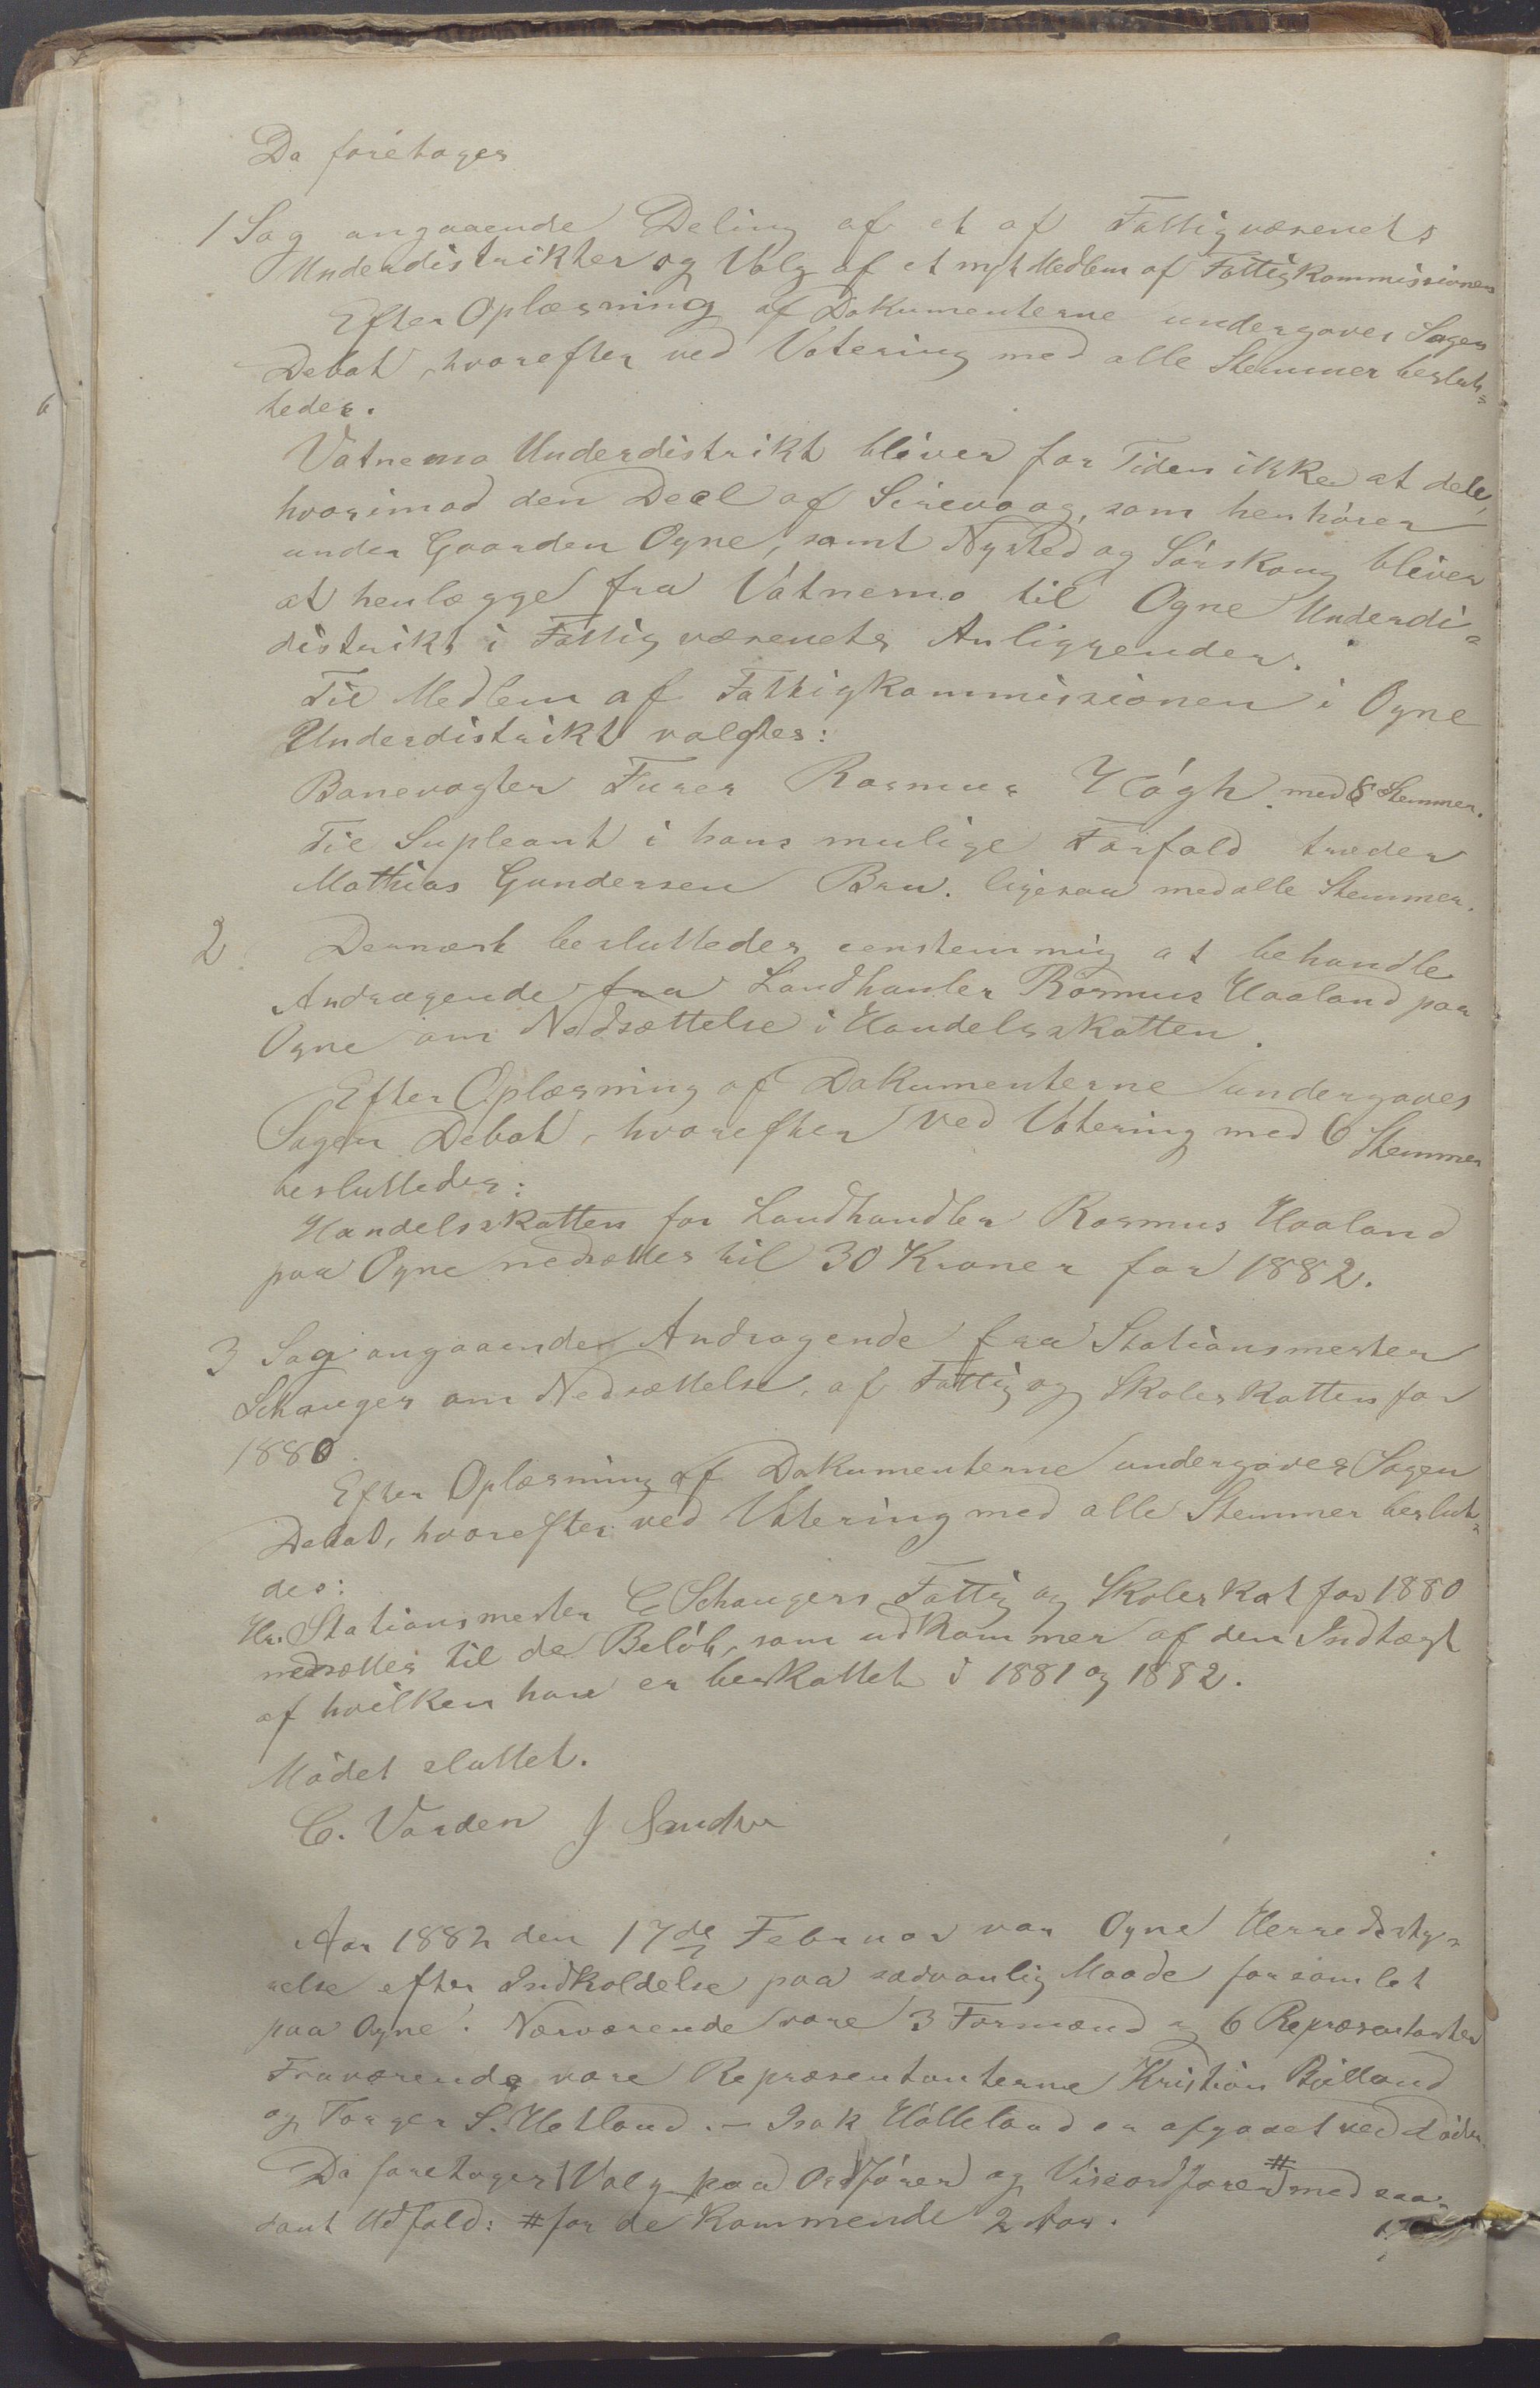 Da foretages
1 Sag angaaende Deling af et af Fattigvæsenets
Underdistrikter og Valg af et nyt Medlem af Fattigkommissionen
Efter Oplæsning af Dokumenterne undergaves Sagen
Debat, hvorefter ved Votering med alle Stemmer beslut-
tedes.
Vatnemo Underdistrikt bliver for Tiden ikke at dele,
hvorimod den Deel af Sirevaag, som henhører
under Gaarden Ogne, samt Nysted og Sørskoug bliver
at henlægge fra Vatnemo til Ogne Underdi-
distrikt i Fattigvæsenets Anliggender.
Til Medlem af Fattigkommissionen i Ogne
Underdistrikt valgtes:
Banevogter Furer Rasmus Høgh med 8 Stemmer.
Til Supleant i hans mulige Forfald træder
Mathias Gundersen Bru. ligesaa med alle Stemmer.
2 Dernæst besluttedes eenstemmig at behandle
Andragende fra Landhanler Rasmus Haaland paa
Ogne om Nedsættelse i Handelsskatten.
Efter Oplæsning af Dokumenterne undergaves
Sagen Debat, hvorefter ved Votering med 6 Stemmer
besluttedes:
Handelsskatten for Landhandler Rasmus Haaland
paa Ogne nedsættes til 30 Kroner for 1882.
3 Sag angaaende Andragende fra Stationsmester
Schanger om Nedsættelse, af Fattig og Skoleskatten for
1880.
Efter Oplæsning af Dokumenterne undergaves Sagen
Debat, hvorefter ved Votering med alle Stemmer beslut-
des:
Hr. Stationsmester C Schangers Fattig og Skoleskat for 1880
nedsættes til de Beløb, som udkommer af den Indtægt
af hvilken han er beskattet i 1881 og 1882.
Mødet sluttet.
C. Varden J Sandve
Aar 1882 den 17de Februar var Ogne Herredsty-
relse efter Indkaldelse paa sædvanlig Maade forsamlet
paa Ogne. Nærværende vare 3 Formænd og 6 Repræsentanter
Fraværende vare Repræsentanterne Kristian Bjelland
og Torger S. Hetland. – Isak Hølleland er afgaaet ved Døden.
Da foretages Valg paa Ordfører og Viseordfører # med saa-
dant Udfald: # for de kommende 2 Aar.